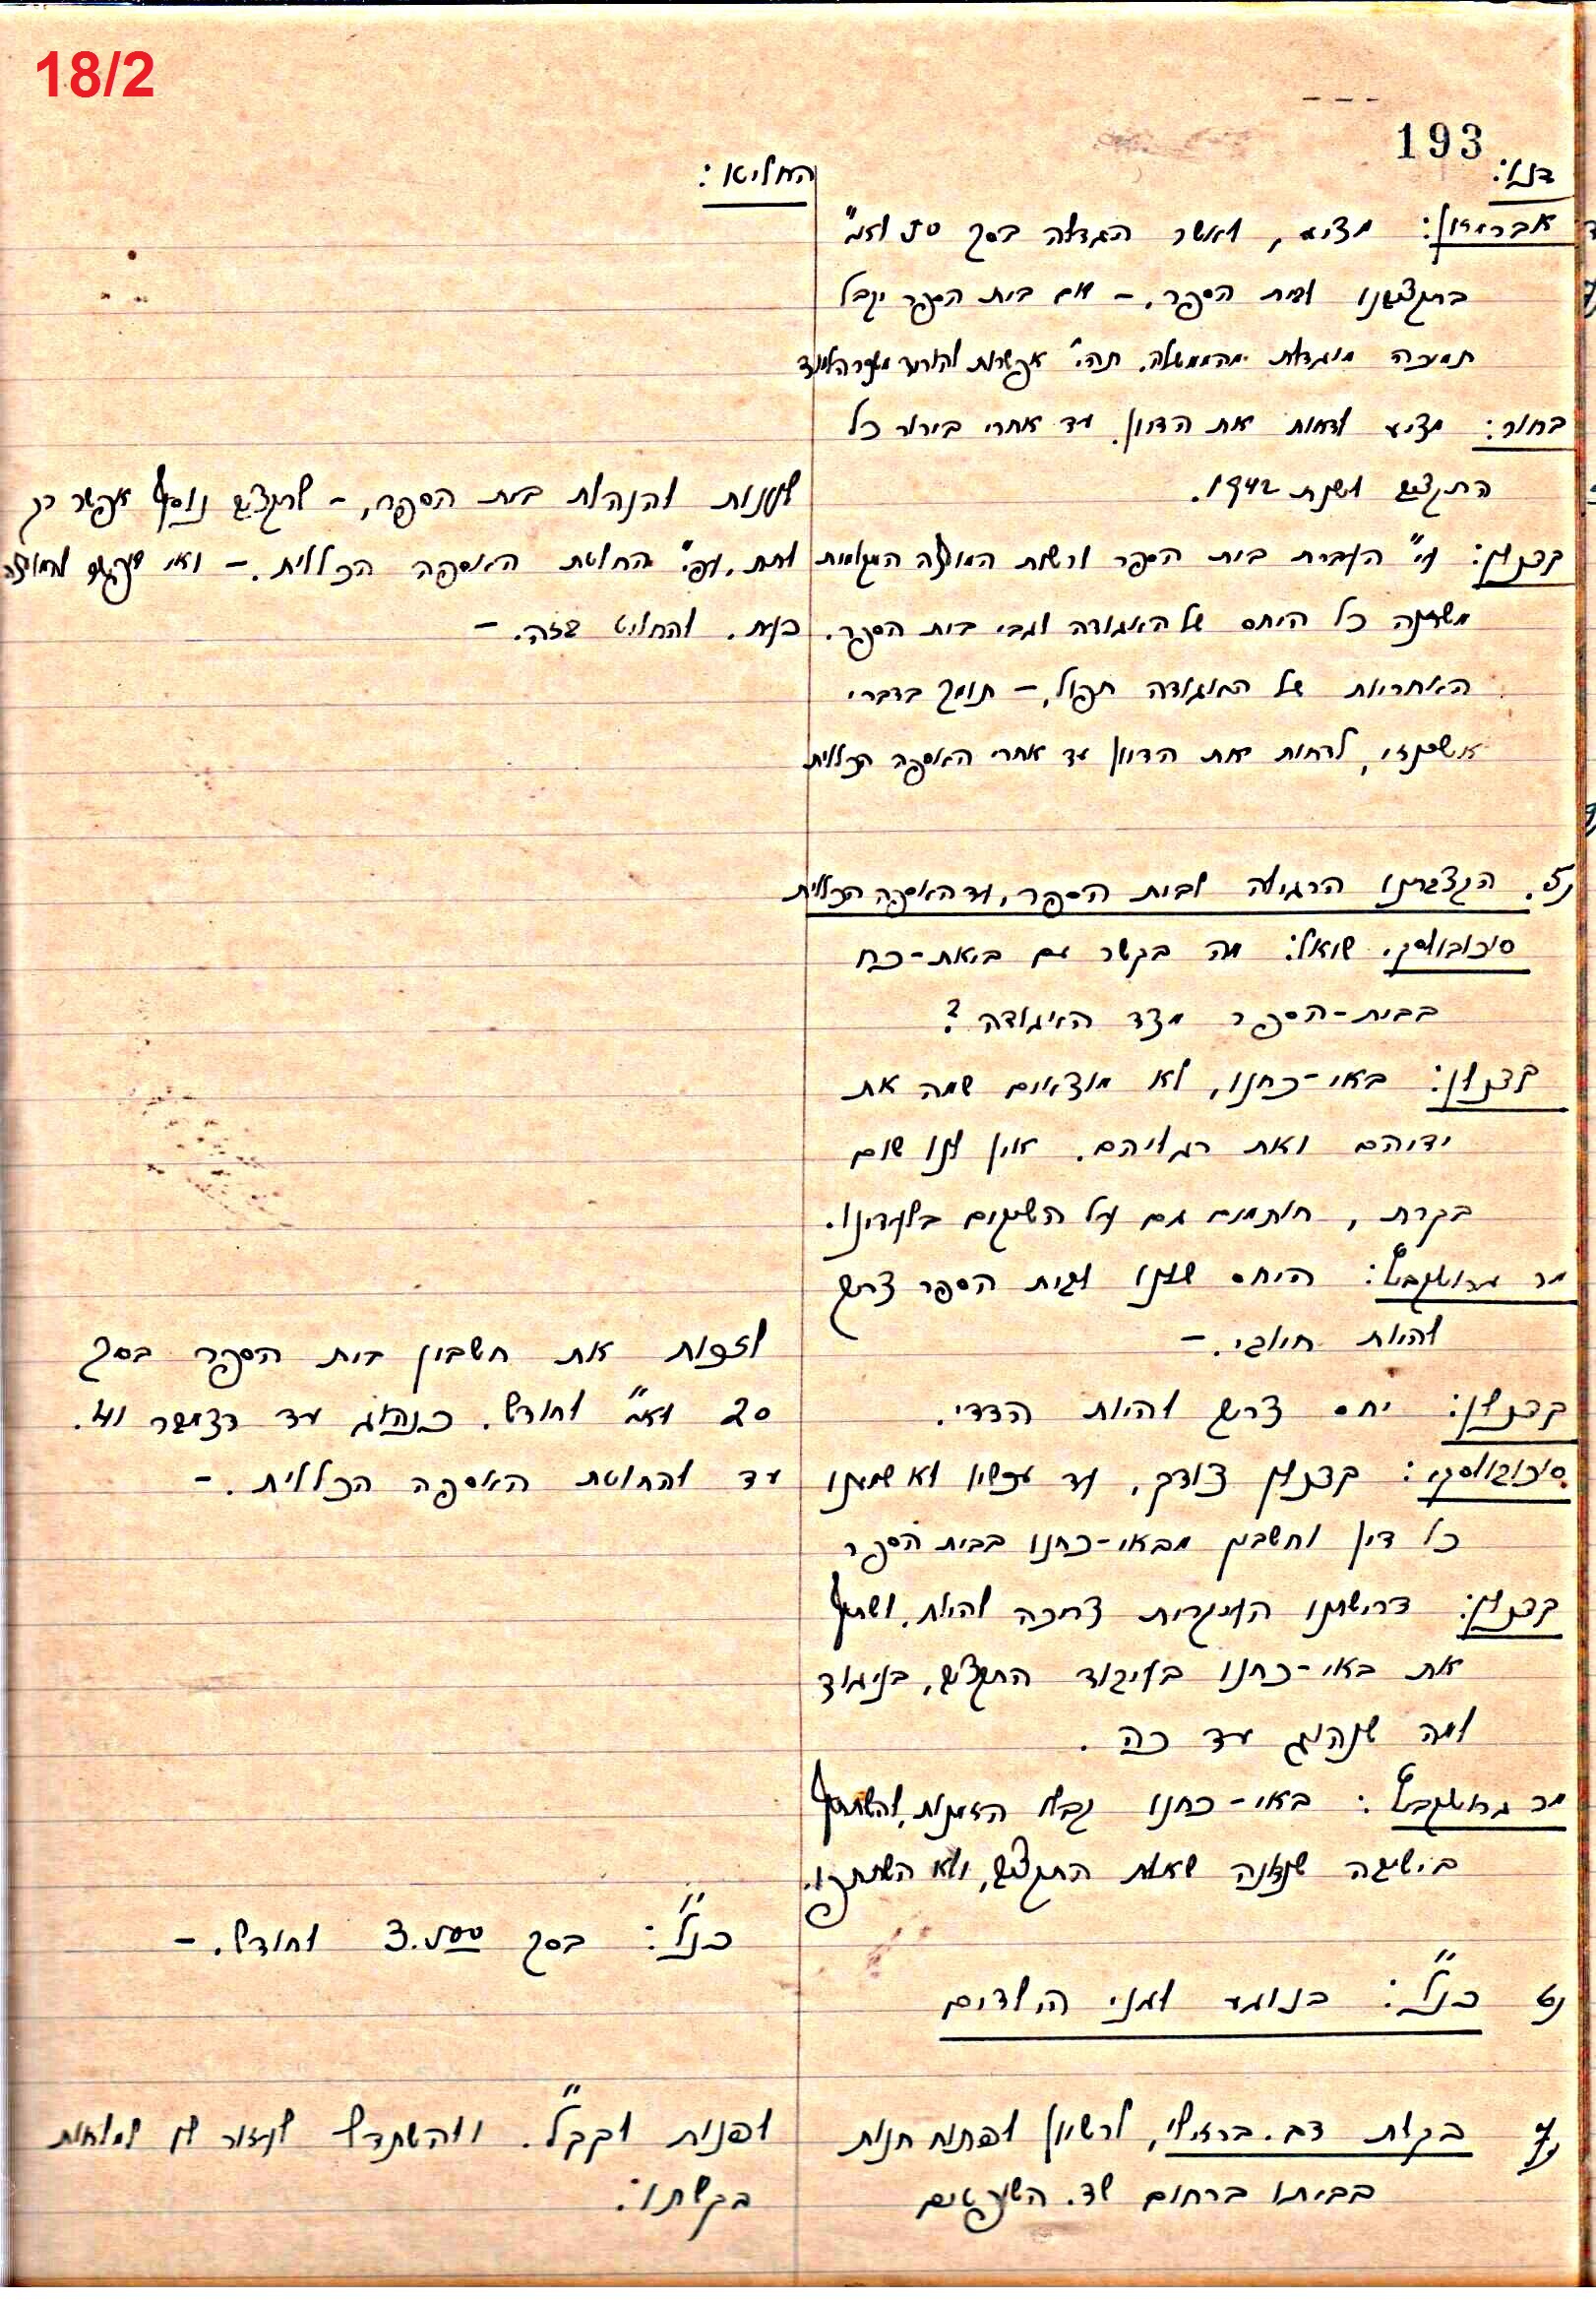 18/2
193
דנו:
אברמזון: מציע, לאשר הגדלה בסך 50 לא"י
בתקציבנו לבית הספר, – אם בית הספר יקבל
תמיכה מוגדלת מהממשלה. תהי' אפשרות להוריד
בחור: מציע לדחות את הדיון. עד אחרי בירור כל
התקציב לשנת 1942.
קצנלסון: ע"י העברת בית הספר לרשות המועצה המקומית
משתנה כל היחס של האגודה לגבי בית הספר.
האחריות של האגודה תפול, – תומך בדברי
אשכנזי, לדחות את הדיון עד אחרי האספה הכללית
נ5. הקצבתנו הרגילה לבית הספר, עד האספה הכללית
סוכובולסקי. שואל: מה בקשר עם באות-כח
בבית-הספר מצד האיגודה?
קצנלסון: באי-כחנו, לא מוצאים שמה את
ידיהם ואת רגליהם. אין לנו שום
בקרת, חותמים גם על השיקים בלעדינו.
מר גרוטקביץ: היחס שלנו לבית הספר צריך
להיות חיובי. –
קצנלסון: יחס צריך להיות הדדי.
סוכובולסקי: קצנלסון צודק, עד עכשיו לא שמענו
כל דין וחשבון מבאי-כחנו בבית הספר
קצנלסון: דרישתנו העיקרית צריכה להיות. לשתף
את באי-כחנו בעיבוד התקציב, בניגוד
למה שנהוג עד כה.
מר גרוטקביץ: באי-כחנו קבלו הזמנות, להשתתף
בישיבה שדנה שאלת התקציב, ולא השתתפו.
נט כנ"ל: בנוגע לגני הילדים
בקשת דב. ברזילי, לרשיון לפתוח חנות
בביתו ברחוב שד.
החליטו:
לענות להנהלת בית הספר, – שתקציב נוסף אפשר רק
לתת. לפי החלטת האספה הכללית. –
כנ"ל. להחליט בזה. –
לזכות את חשבון בית הספר בסך
20 לא"י לחודש. כנהוג עד דצמבר 41.
עד להחלטת האספה הכללית. –
כנ"ל: בסך 3.500 לחודש. –
לפנות לקבל. ולהשתדל לעזור לו למלאות
בקשתו: